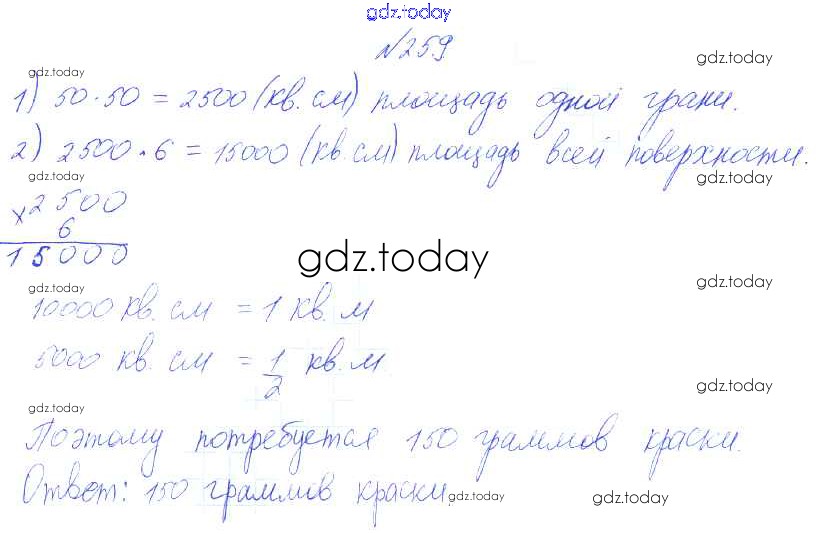 gdz.today
№259
gdz.today
gdz.today
1) 50·50 = 2500 (кв.см) площадь одной грани.
2) 2500·6 = 15000 (кв.см) площадь всей поверхности.
gdz.today
gdz.today
×2500
6
15000
gdz.today
gdz.today
gdz.today
10000 кв. см = 1 кв. м
5000 кв. см = 1/2 кв. м.
gdz.today
gdz.today
Поэтому потребуется 150 граммов краски.
Ответ: 150 граммов краски.
gdz.today
gdz.today
gdz.today